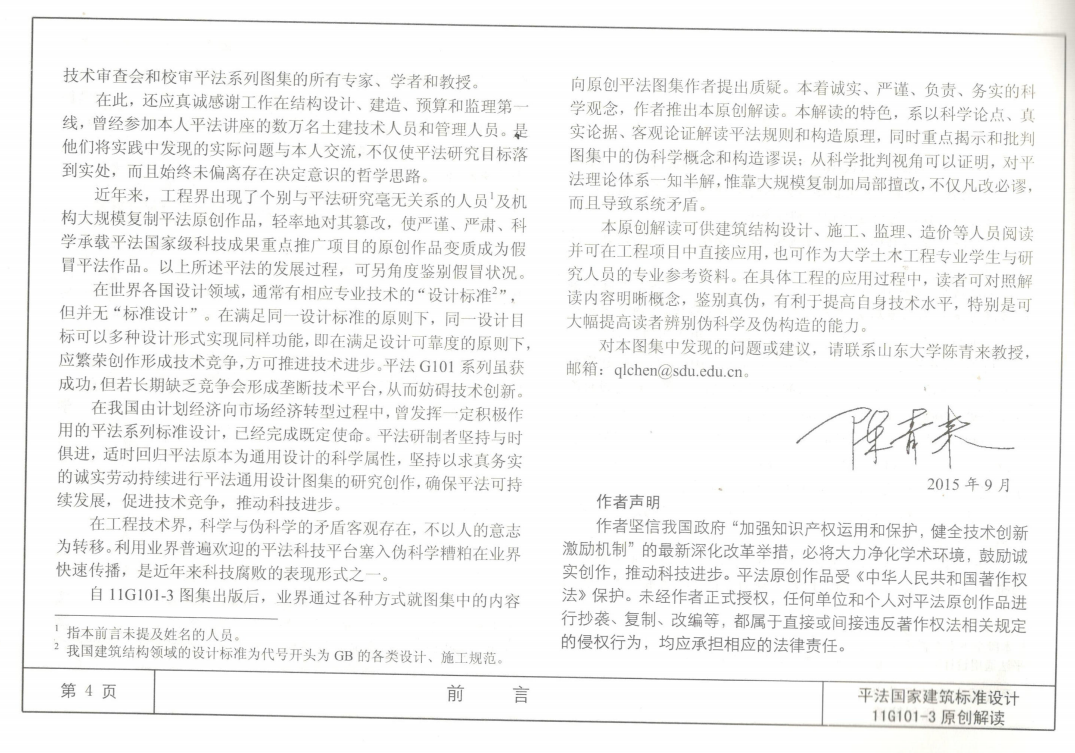 技术审查会和校审平法系列图集的所有专家、学者和教授。
在此，还应真诚感谢工作在结构设计、建造、预算和监理第一
线，曾经参加本人平法讲座的数万名土建技术人员和管理人员。是
他们将实践中发现的实际问题与本人交流，不仅使平法研究目标落
到实处，而且始终未偏离存在决定意识的哲学思路。
近年来，工程界出现了个别与平法研究毫无关系的人员1及机
构大规模复制平法原创作品，轻率地对其篡改，使严谨、严肃、科
学承载平法国家级科技成果重点推广项目的原创作品变质成为假
冒平法作品。以上所述平法的发展过程，可另角度鉴别假冒状况。
在世界各国设计领域，通常有相应专业技术的“设计标准2”，
但并无“标准设计”。在满足同一设计标准的原则下，同一设计目
标可以多种设计形式实现同样功能，即在满足设计可靠度的原则下，
应繁荣创作形成技术竞争，方可推进技术进步。平法 G101 系列虽获
成功，但若长期缺乏竞争会形成垄断技术平台，从而妨碍技术创新。
在我国由计划经济向市场经济转型过程中，曾发挥一定积极作
用的平法系列标准设计，已经完成既定使命。平法研制者坚持与时
俱进，适时回归平法原本为通用设计的科学属性，坚持以求真务实
的诚实劳动持续进行平法通用设计图集的研究创作，确保平法可持
续发展，促进技术竞争，推动科技进步。
在工程技术界，科学与伪科学的矛盾客观存在，不以人的意志
为转移。利用业界普遍欢迎的平法科技平台塞入伪科学糟粕在业界
快速传播，是近年来科技腐败的表现形式之一。
自 11G101-3 图集出版后，业界通过各种方式就图集中的内容
1 指本前言未提及姓名的人员。
2 我国建筑结构领域的设计标准为代号开头为 GB 的各类设计、施工规范。
向原创平法图集作者提出质疑。本着诚实、严谨、负责、务实的科
学观念，作者推出本原创解读。本解读的特色，系以科学论点、真
实论据、客观论证解读平法规则和构造原理，同时重点揭示和批判
图集中的伪科学概念和构造谬误；从科学批判视角可以证明，对平
法理论体系一知半解，惟靠大规模复制加局部擅改，不仅凡改必谬，
而且导致系统矛盾。
本原创解读可供建筑结构设计、施工、监理、造价等人员阅读
并可在工程项目中直接应用，也可作为大学土木工程专业学生与研
究人员的专业参考资料。在具体工程的应用过程中，读者可对照解
读内容明晰概念，鉴别真伪，有利于提高自身技术水平，特别是可
大幅提高读者辨别伪科学及伪构造的能力。
对本图集中发现的问题或建议，请联系山东大学陈青来教授，
邮箱：qlchen@sdu.edu.cn。
陈青来
2015 年 9 月
作者声明
作者坚信我国政府“加强知识产权运用和保护，健全技术创新
激励机制”的最新深化改革举措，必将大力净化学术环境，鼓励诚
实创作，推动科技进步。平法原创作品受《中华人民共和国著作权
法》保护。未经作者正式授权，任何单位和个人对平法原创作品进
行抄袭、复制、改编等，都属于直接或间接违反著作权法相关规定
的侵权行为，均应承担相应的法律责任。
第 4 页
前 言
平法国家建筑标准设计
11G101-3 原创解读